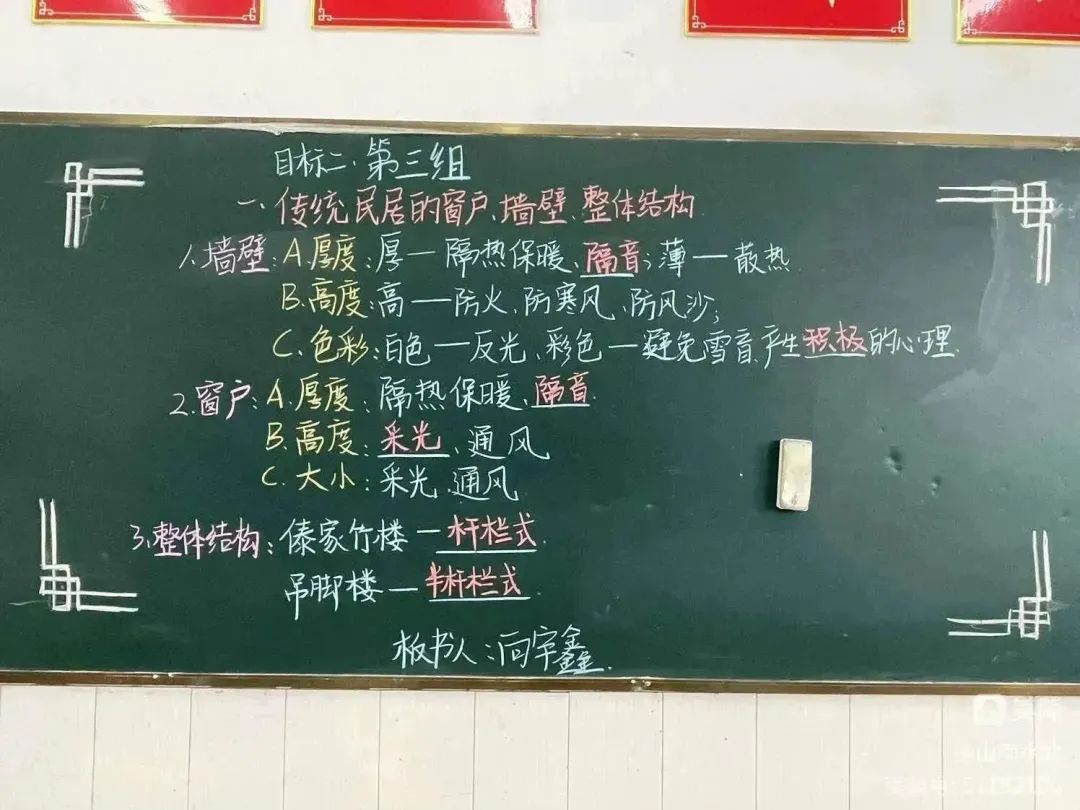 目标二、第三组
一、传统民居的窗户、墙壁、整体结构
1、墙壁：A.厚度：厚一隔热保暖、隔音；薄一散热
B.高度：高一防火、防寒风、防风沙；
C.色彩：白色一反光、彩色一避免雪盲、产生积极的心理
2.窗户：A.厚度：隔热保暖、隔音
B.高度：采光、通风
C.大小：采光、通风
3、整体结构：傣家竹楼一杆栏式
吊脚楼一半杆栏式
板书人：向宇鑫